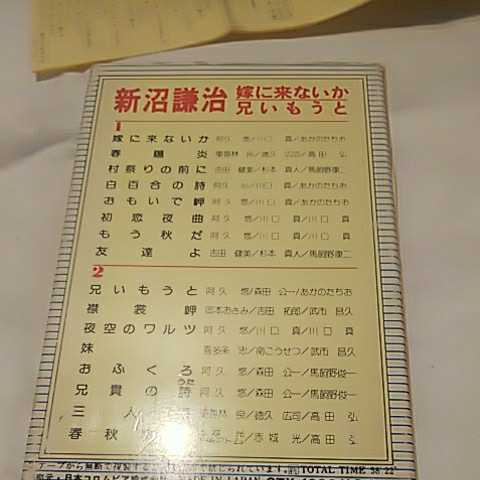 新沼謙治 嫁に来ないか
兄いもうと
1
嫁に来ないか 阿久 悠/川口 真/あかのたちお
春陽炎 広司/高田 弘
村祭りの前に 吉田 健美/杉本 真人/馬飼野康二
白百合の詩 阿久 悠/川口 真/あかのたちお
おもいで岬 阿久 悠/川口 真/あかのたちお
初恋夜曲 阿久 悠/川口 真/川口 真
もう秋だ 阿久 悠/川口 真/川口 真
友達よ 吉田 健美/杉本 真人/馬飼野康二
2
兄いもうと 阿久 悠/森田 公一/あかのたちお
襟裳岬 岡本おさみ/吉田 拓郎/武市 昌久
夜空のワルツ 阿久 悠/川口 真/川口 真
妹 喜多条 忠/南こうせつ/武市 昌久
おふくろ 阿久 悠/森田 公一/馬飼野俊一
兄貴の詩 うた 阿久 悠/森田 公一/馬飼野俊一
三人 /徳久 広司/高田 弘
春秋 /赤城 光/高田 弘
テープから無断で複製することは 禁じられています。 TOTAL TIME 58'22"
MADE IN JAPAN